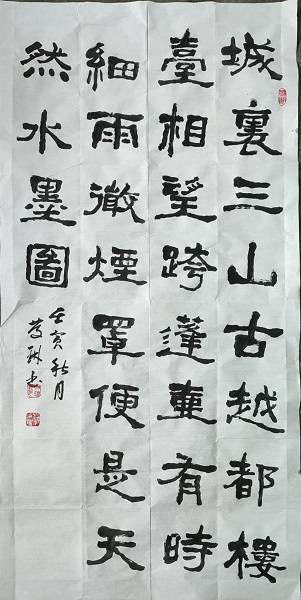 城裏三山古越都樓
臺相望跨蓬壺有時
細雨微煙罩便是天
然水墨圖
壬寅秋月
书